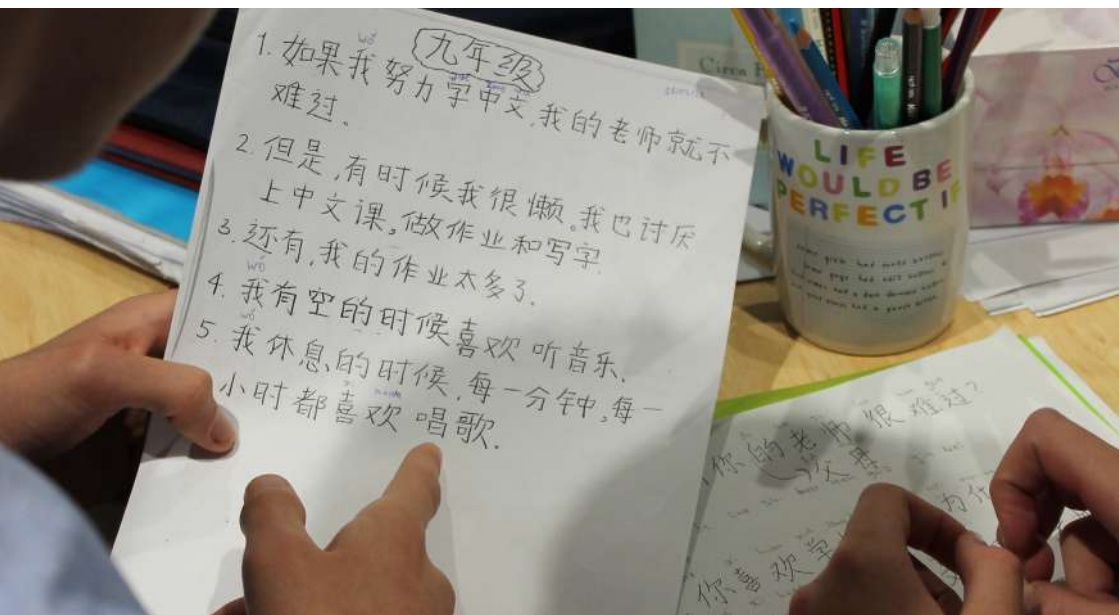 九年级
wǒ
1. 如果我努力学中文,我的老师就不
难过.
2. 但是,有时候我很懒。我巴讨厌
上中文课,做作业和写字.
3. 还有,我的作业太多了.
wǒ
4. 我有空的时候喜欢听音乐.
wǒ
5. 我休息的时候,每一分钟,每一
小时都喜欢唱歌.
LIFE
WOULD BE
PERFECT IF
你的老师很难过?
父母
为什
你喜欢学